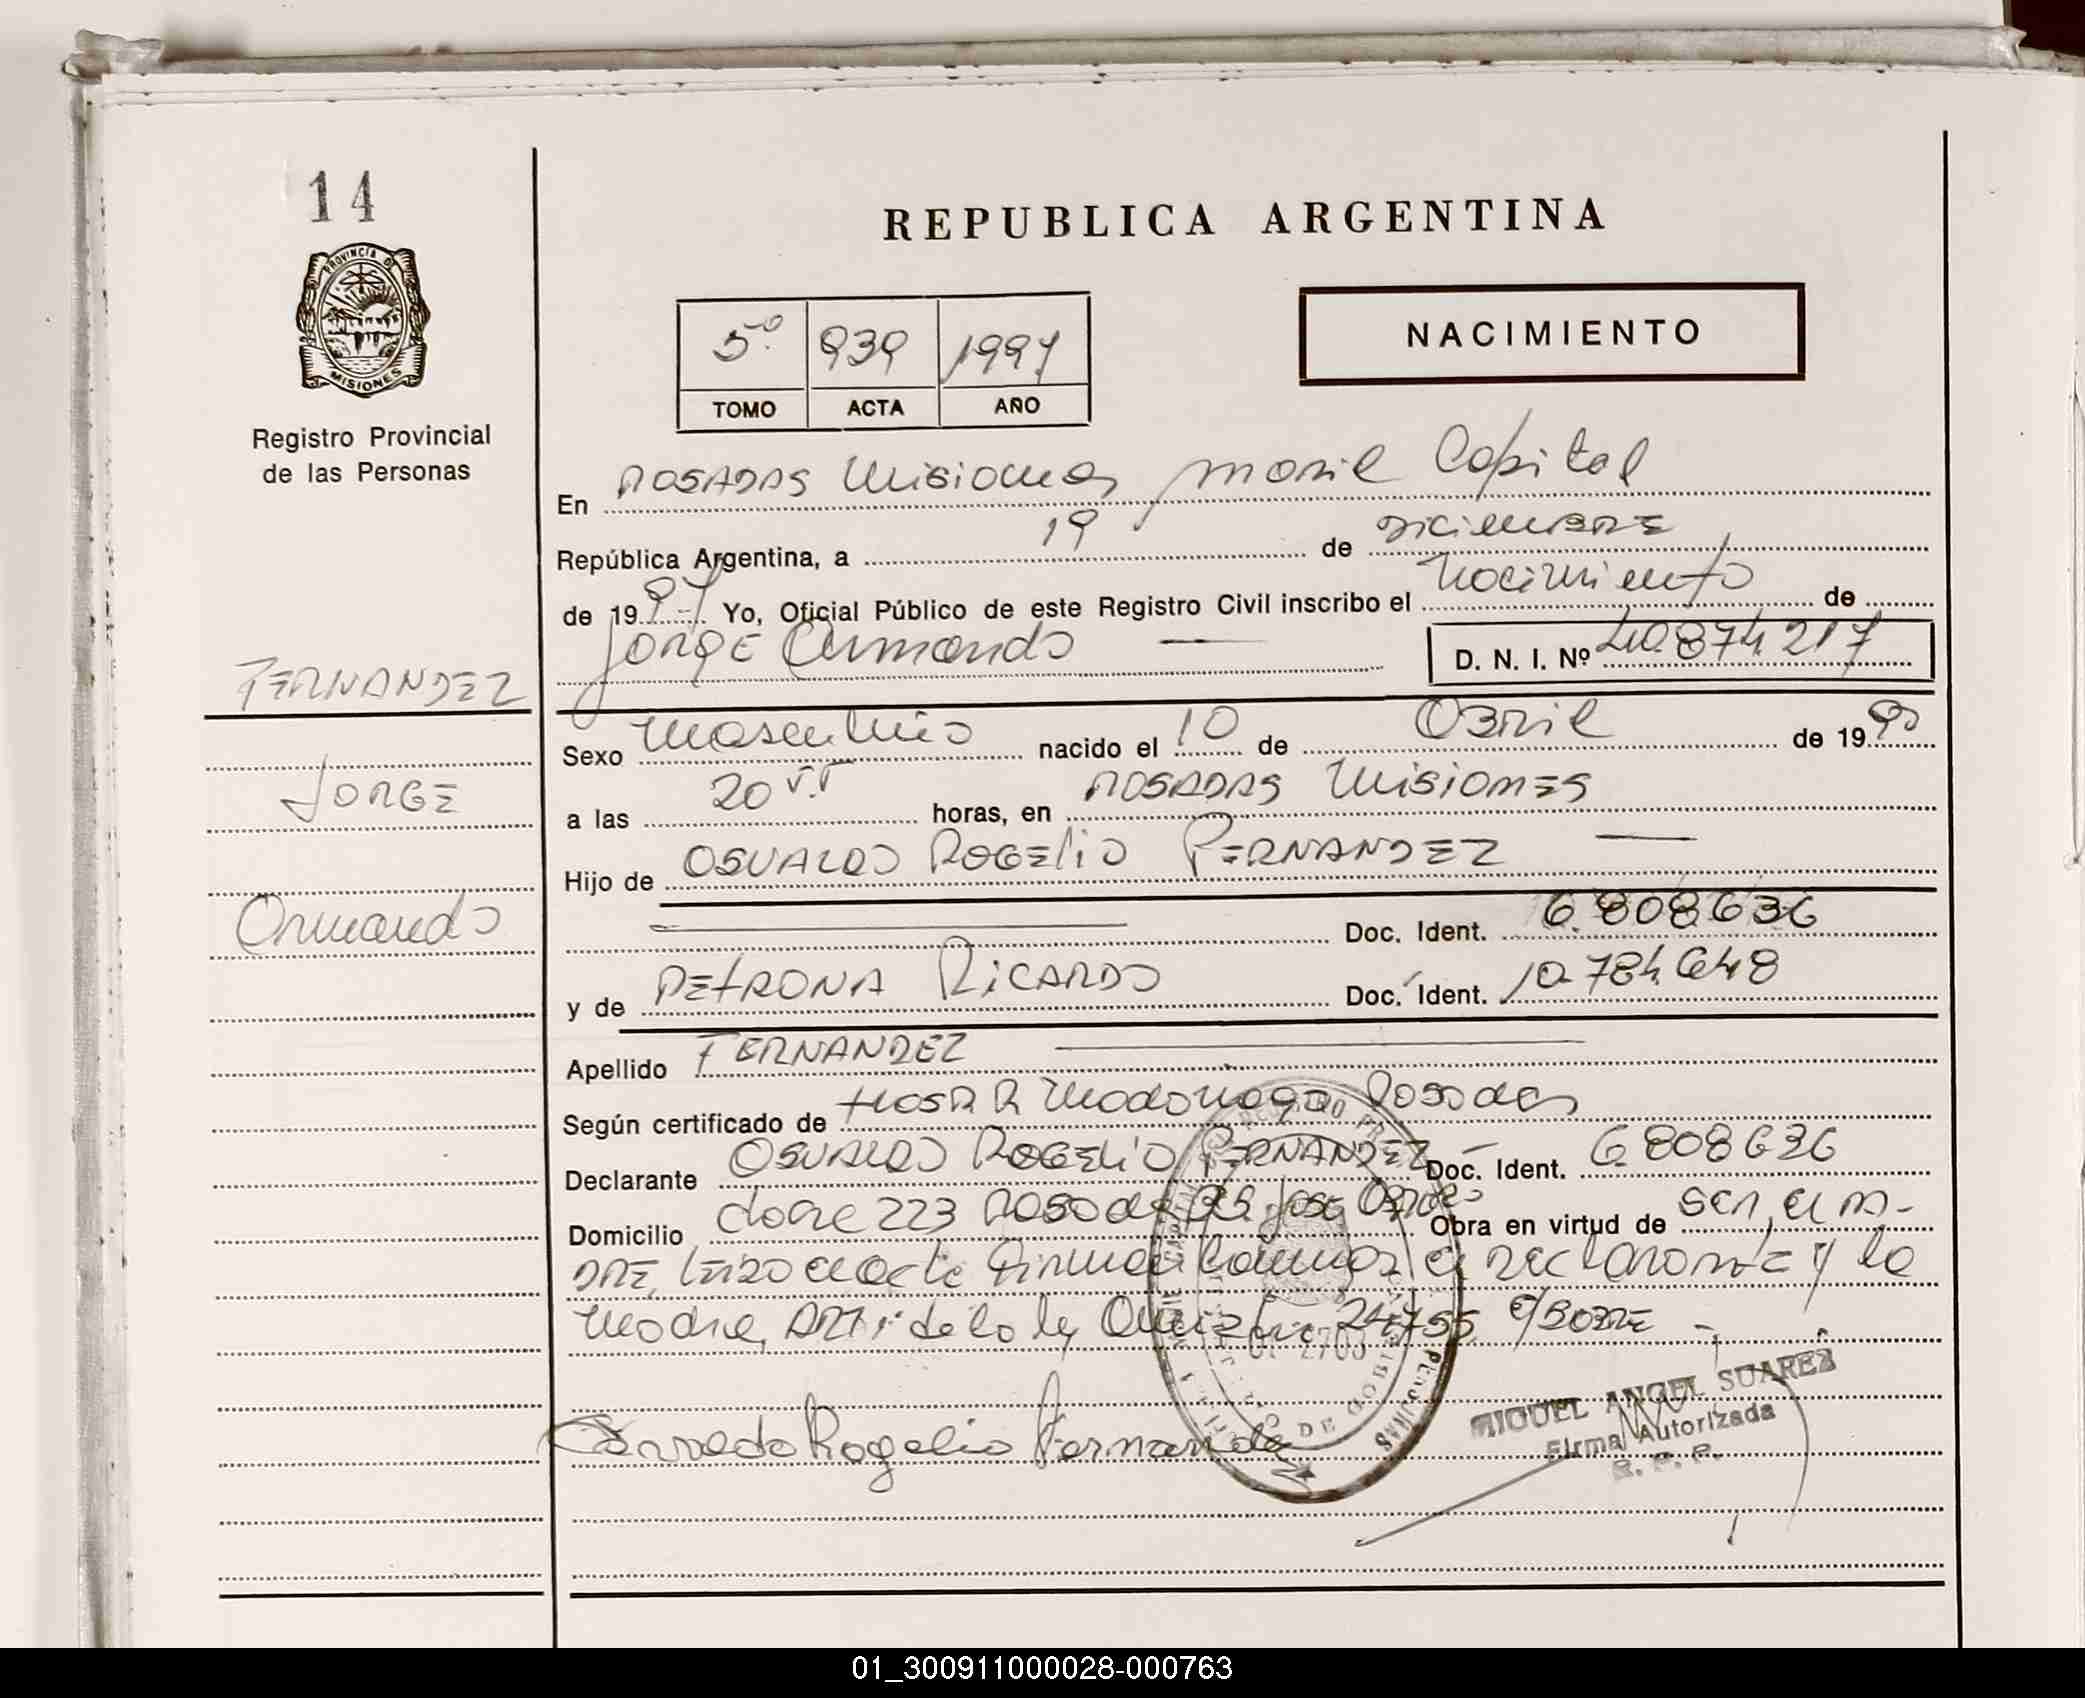 14
PROVINCIA DE
MISIONES
Registro Provincial
de las Personas
REPUBLICA ARGENTINA
5º 939 1997
TOMO ACTA AÑO
NACIMIENTO
En POSADAS Misiones movil Capital
República Argentina, a 19 de DiciemBRE
de 1997 Yo, Oficial Público de este Registro Civil inscribo el Nacimiento de
JORGE Armando — D. N. I. Nº 40.874.217
FERNANDEZ
JORGE
Armando
Sexo Masculino nacido el 10 de ABRil de 1990
a las 20 horas, en POSADAS MISIONES
Hijo de OSVALDO ROGELIO FERNANDEZ —
Doc. Ident. 6.808636
y de PETRONA RICARDO Doc. Ident. 10.784.648
Apellido FERNANDEZ
Según certificado de HOSP. R Madariaga Posadas
Declarante OSVALDO ROGELIO FERNANDEZ - Doc. Ident. 6.808636
Domicilio 223 POSADAS Obra en virtud de ser el PA-
DRE, Leido el acta Firma Conmigo el declarante y la
Madre, ley
Osvaldo Rogelio Fernandez
MIGUEL ANGEL SUAREZ
Firma Autorizada
R. P. P.
01_300911000028-000763